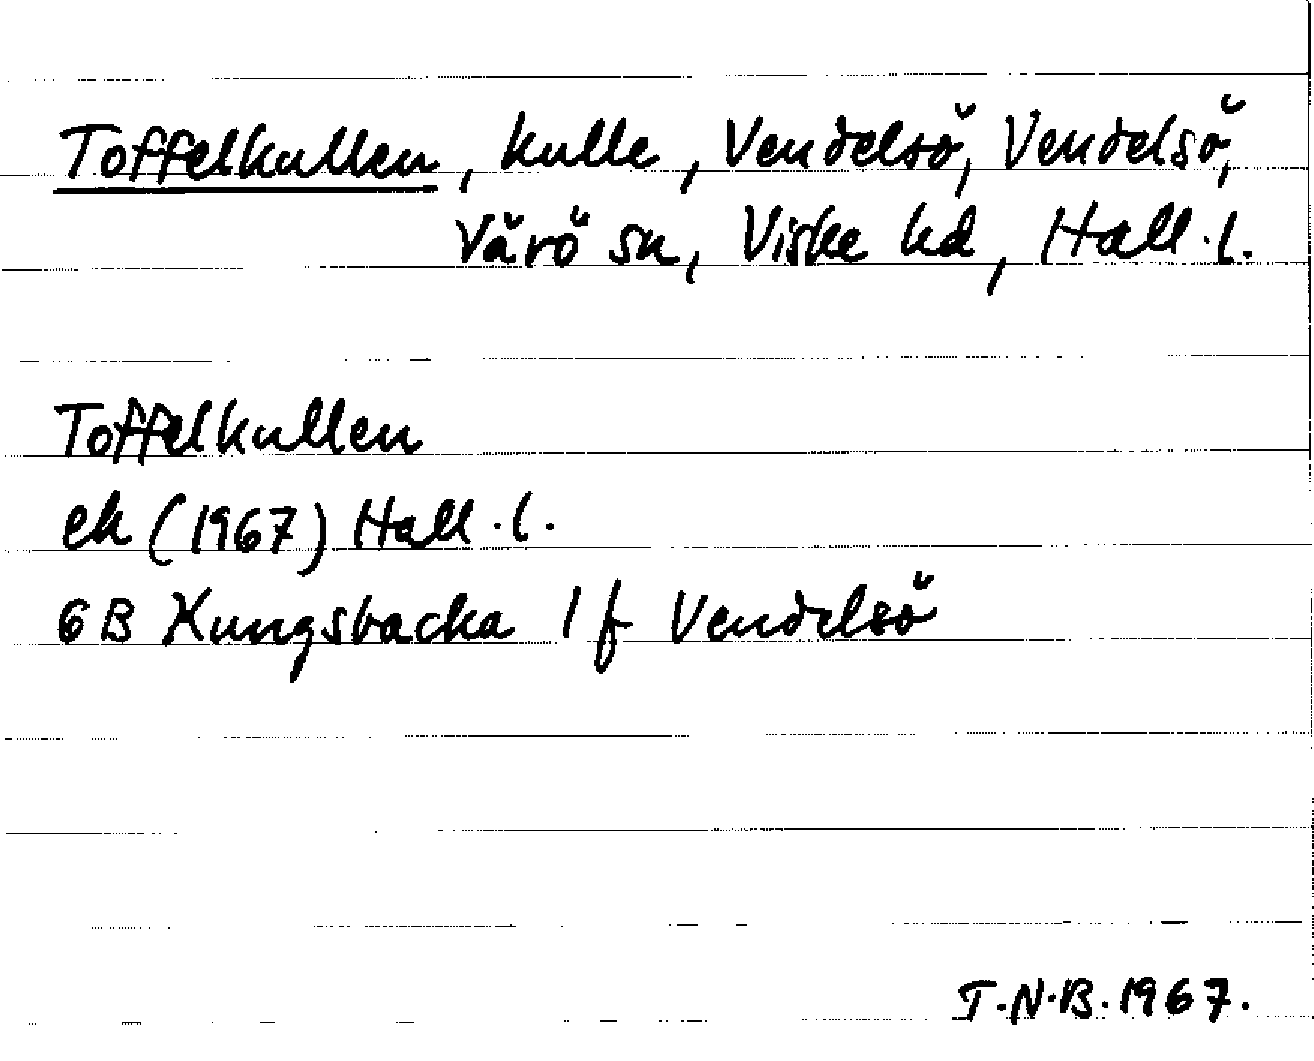 Toffelkullen, kulle, Vendelsö, Vendelsö,
Värö sn, Viske hd, Hall.l.
Toffelkullen
ek (1967) Hall.l.
6B Kungsbacka 1f Vendelsö
T.N.B.1967.